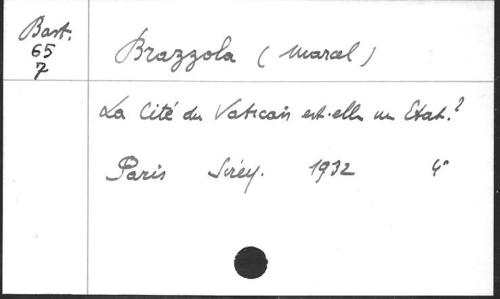 Bast.
65
7
Brazzola (Marcel)
La Cité du Vatican est-elle un Etat?
Paris Sirey. 1932 4°